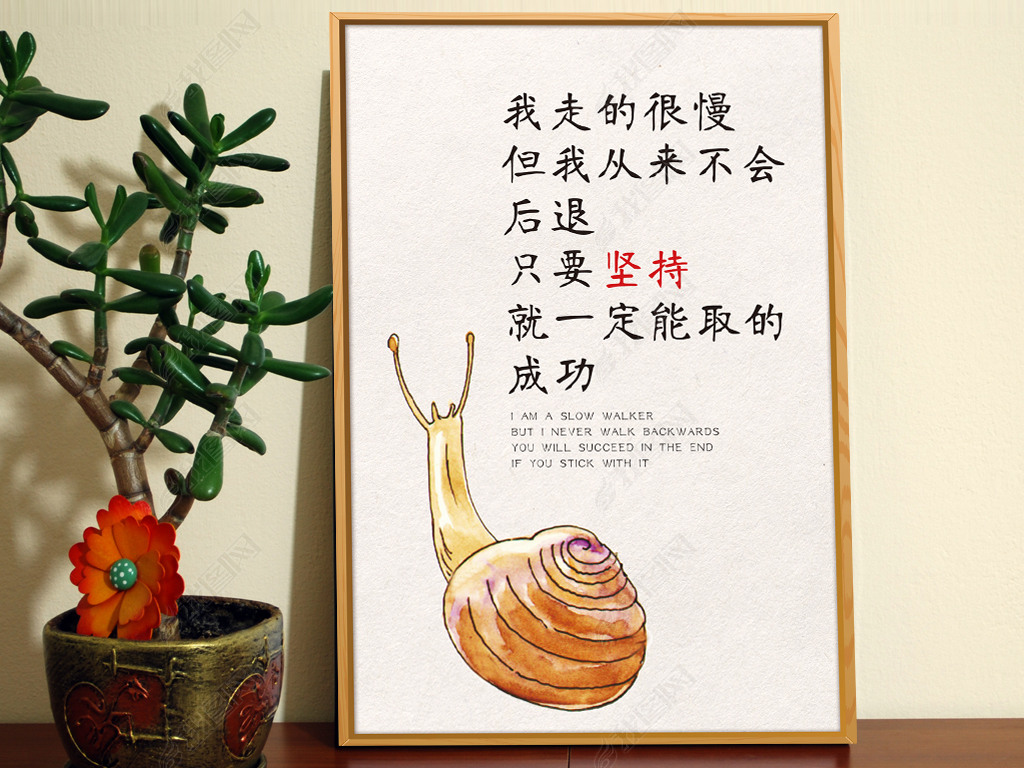 我走的很慢
但我从来不会
后退
只要坚持
就一定能取的
成功
I AM A SLOW WALKER
BUT I NEVER WALK BACKWARDS
YOU WILL SUCCEED IN THE END
IF YOU STICK WITH IT